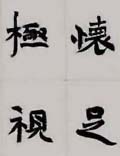 懷足
極視